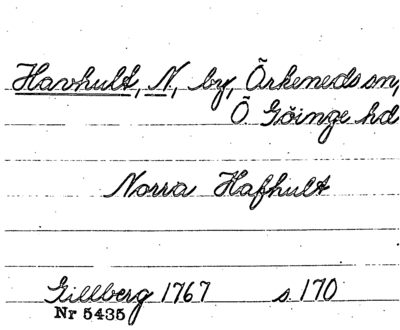 Havhult, N, by, Örkeneds sn,
Ö Göinge hd
Norra Hafhult
Gillberg 1767 s. 170
Nr 5435